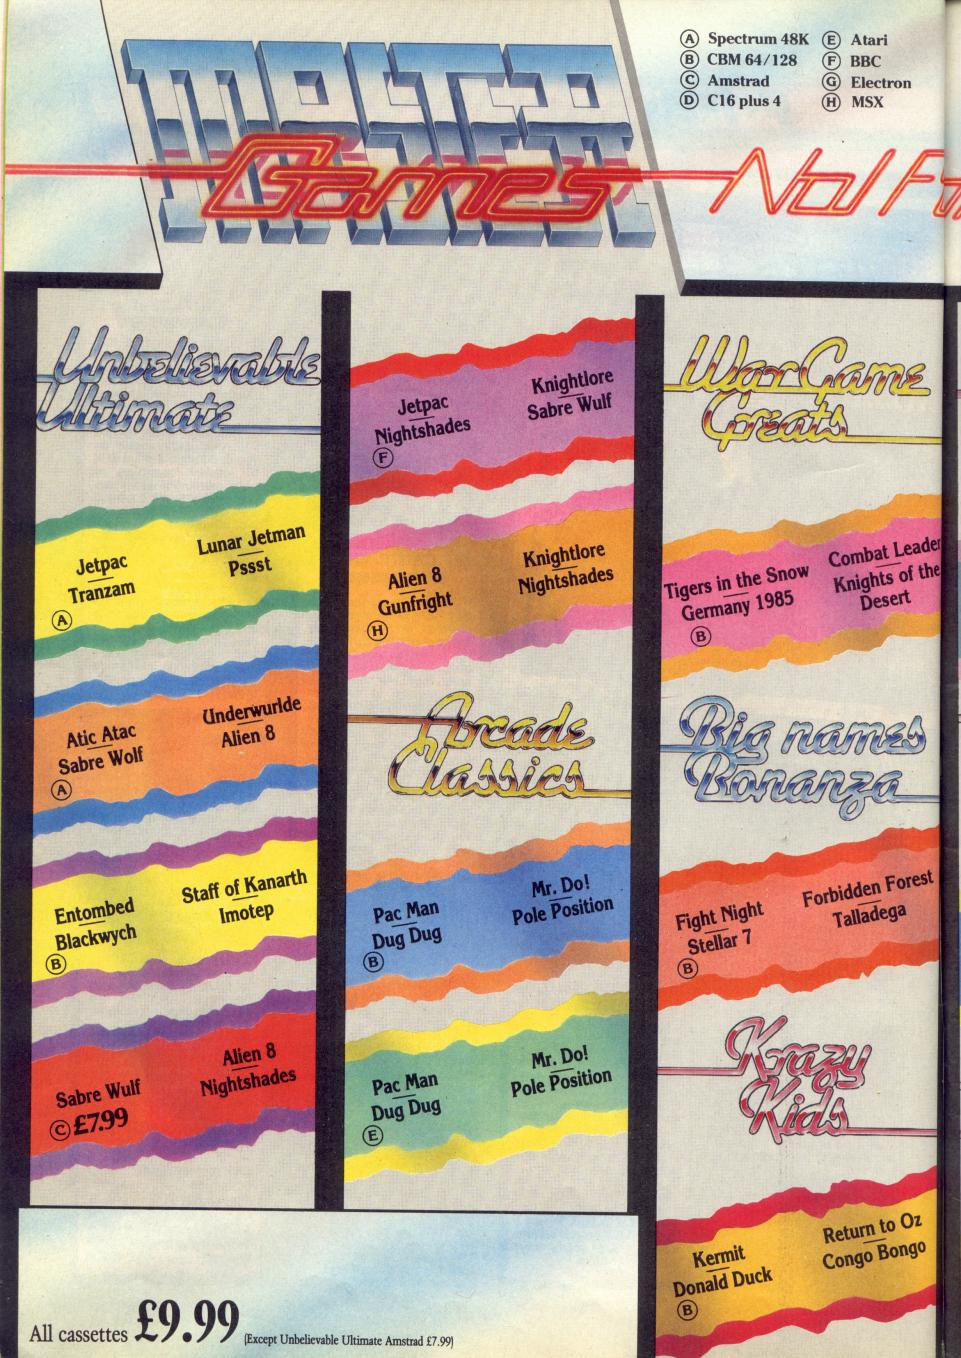 MASTER
Games
Ⓐ Spectrum 48K Ⓔ Atari
Ⓑ CBM 64/128 Ⓕ BBC
Ⓒ Amstrad Ⓖ Electron
Ⓓ C16 plus 4 Ⓗ MSX
Unbelievable
Ultimate
Jetpac
Tranzam
Lunar Jetman
Pssst
Ⓐ
Atic Atac
Sabre Wolf
Underwurlde
Alien 8
Ⓐ
Entombed
Blackwych
Staff of Kanarth
Imotep
Ⓑ
Sabre Wulf
Alien 8
Nightshades
Ⓒ £7.99
Jetpac
Nightshades
Knightlore
Sabre Wulf
Ⓕ
Alien 8
Gunfright
Knightlore
Nightshades
Ⓗ
Arcade
Classics
Pac Man
Dug Dug
Mr. Do!
Pole Position
Ⓑ
Pac Man
Dug Dug
Mr. Do!
Pole Position
Ⓔ
War Game
Greats
Tigers in the Snow
Germany 1985
Combat Leader
Knights of the
Desert
Ⓑ
Big names
Bonanza
Fight Night
Stellar 7
Forbidden Forest
Talladega
Ⓑ
Krazy
Kids
Kermit
Donald Duck
Return to Oz
Congo Bongo
Ⓑ
All cassettes £9.99 (Except Unbelievable Ultimate Amstrad £7.99)